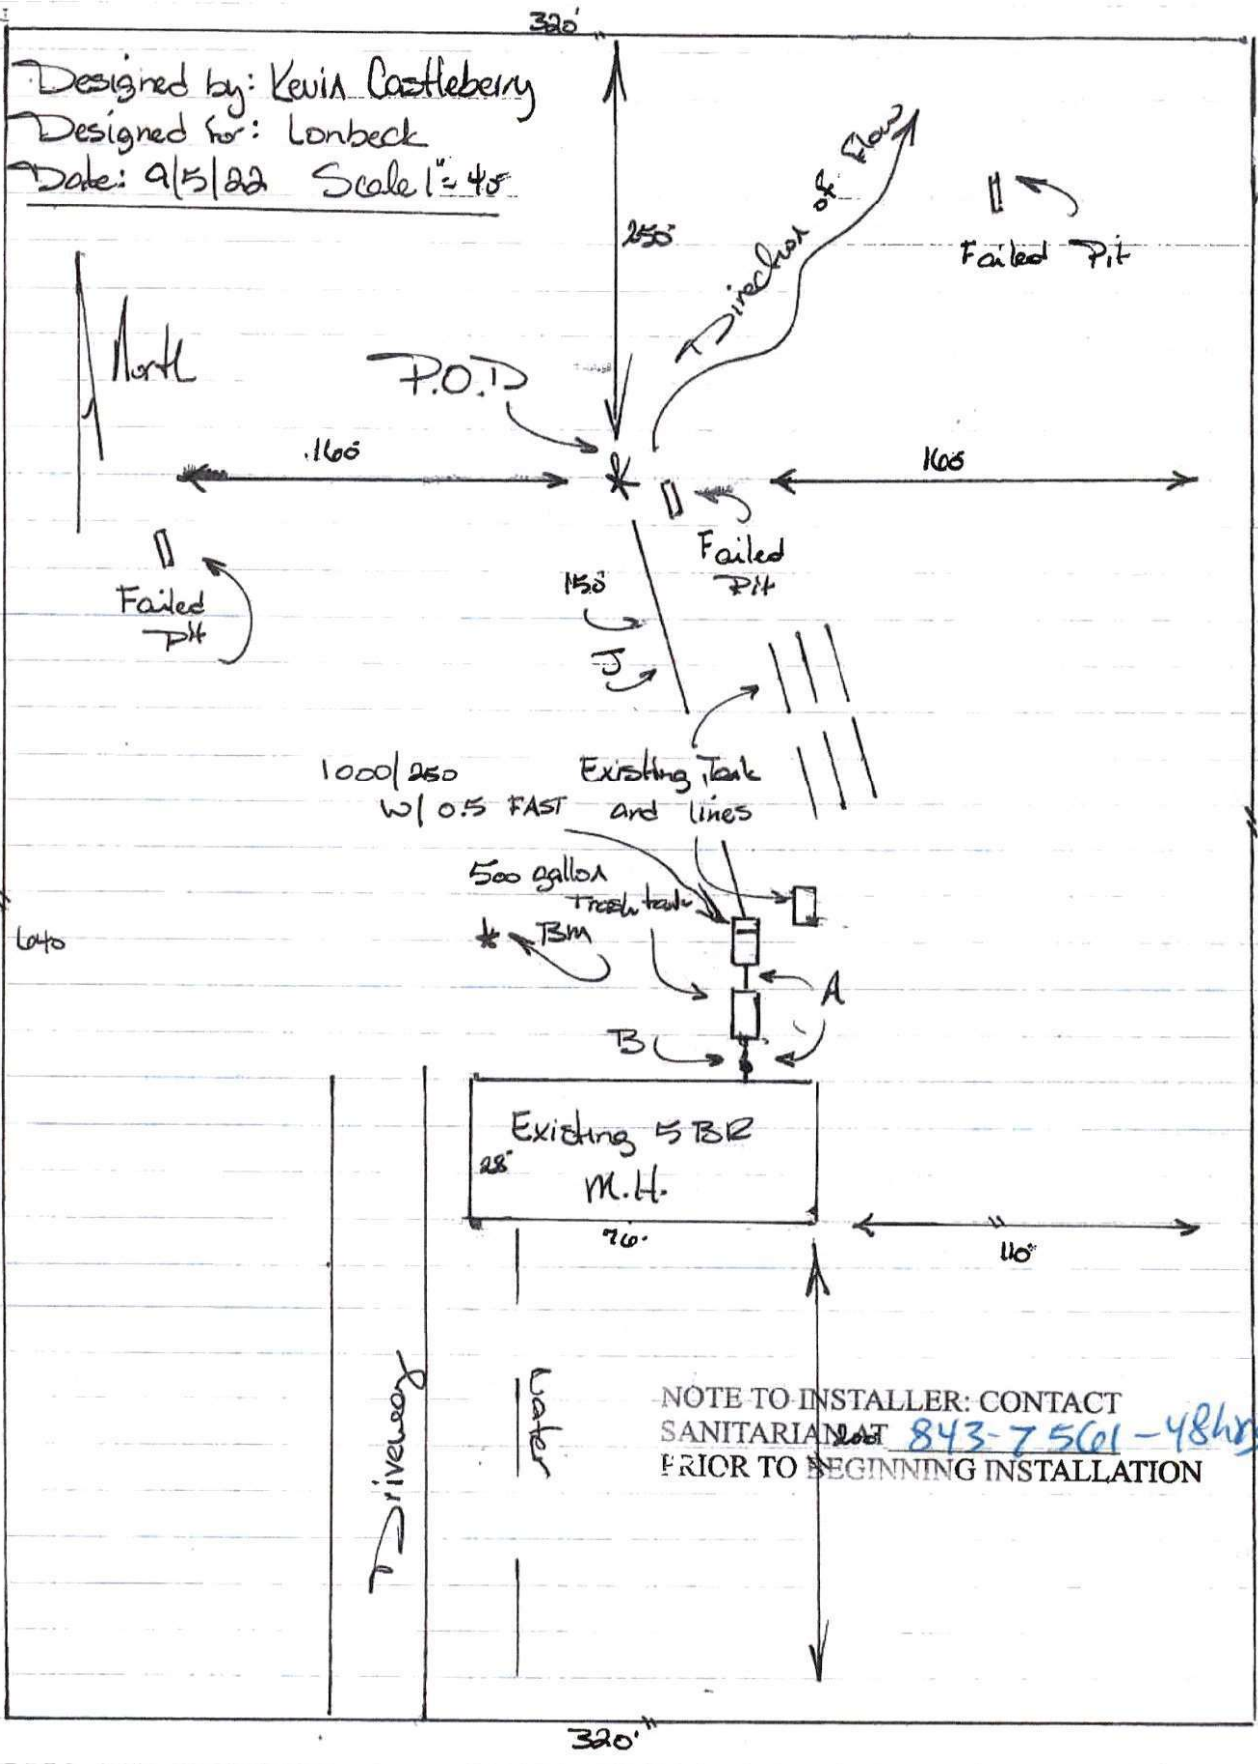 320'
Designed by: Kevin Castleberry
Designed for: Lonbeck
Date: 9/5/22 Scale 1"=40'
250'
Direction of Flow
Failed Pit
North
P.O.D
160'
160'
Failed
Pit
Failed
Pit
150'
J
1000/250
W/ 0.5 FAST
Existing Tank
and lines
500 gallon
Trash tank
640
BM
A
B
Existing 5 BR
M.H.
28'
76'
110'
Driveway
Water
NOTE TO INSTALLER: CONTACT
SANITARIAN AT 843-7561-48hrs
PRIOR TO BEGINNING INSTALLATION
320'